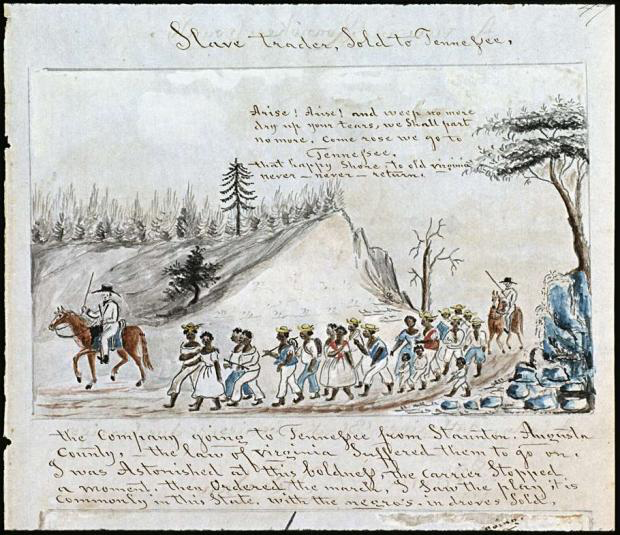 Slave trader, Sold to Tennessee,
Arise! Arise! and weep no more
dry up your tears, we Shall part
no more, Come rose we go to
Tennessee,
that happy Shore to old virginia
never - never - return.
the Company going to Tennessee from Staunton, Augusta
County, - the law of virginia Suffered them to go on,
I was Astonished at this boldness, the carrier Stopped
a moment, then Ordered the march, I Saw the play it is
Commonly in this State, with the negro's in droves Sold,